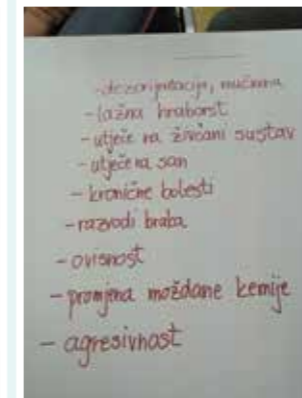 - dezorijentacija, mučnina
- lažna hrabrost
- utječe na živčani sustav
- utječe na san
- kronične bolesti
- razvodi braka
- ovisnost
- promjena moždane kemije
- agresivnost